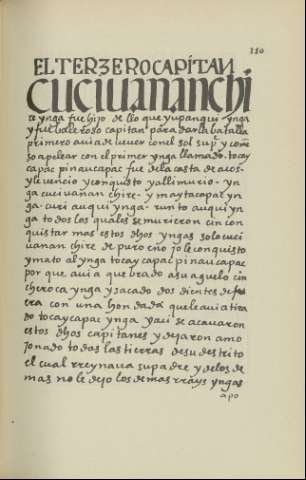 150
EL TERZERO CAPITAN
CUCIUANANCHI
re ynga fue hijo de lloque yupanqui ynga
y fue baleroso capitan para dar la batalla
primero auia de ueuer con el sol su pe y comen
so a pelear con el primer ynga llamado tocay
capac pinau capac fue de la casta de acos
y le uencio y conquisto y alli murio - yn
ga cuciuanan chire - y mayta capac yn
ga - curi auqui ynga - runto auqui yn
ga todos los quales se murieron cin con
quistar mas estos dhos yngas solo cuci
uanan chire de puro eno jo le conquisto
y mato al ynga tocay capac pinau capac
por que auia quebrado a su aguelo cin
che roca ynga y sacado dos dientes de
con una honda da que le auia tira
do tocay capac ynga y aci se acauaron
estos dhos capitanes y dejaron amo
jonado todas las tierras de su destrito
el cual rreynaua su padre y de los de
mas no le dejo los demas rrays yngas
apo